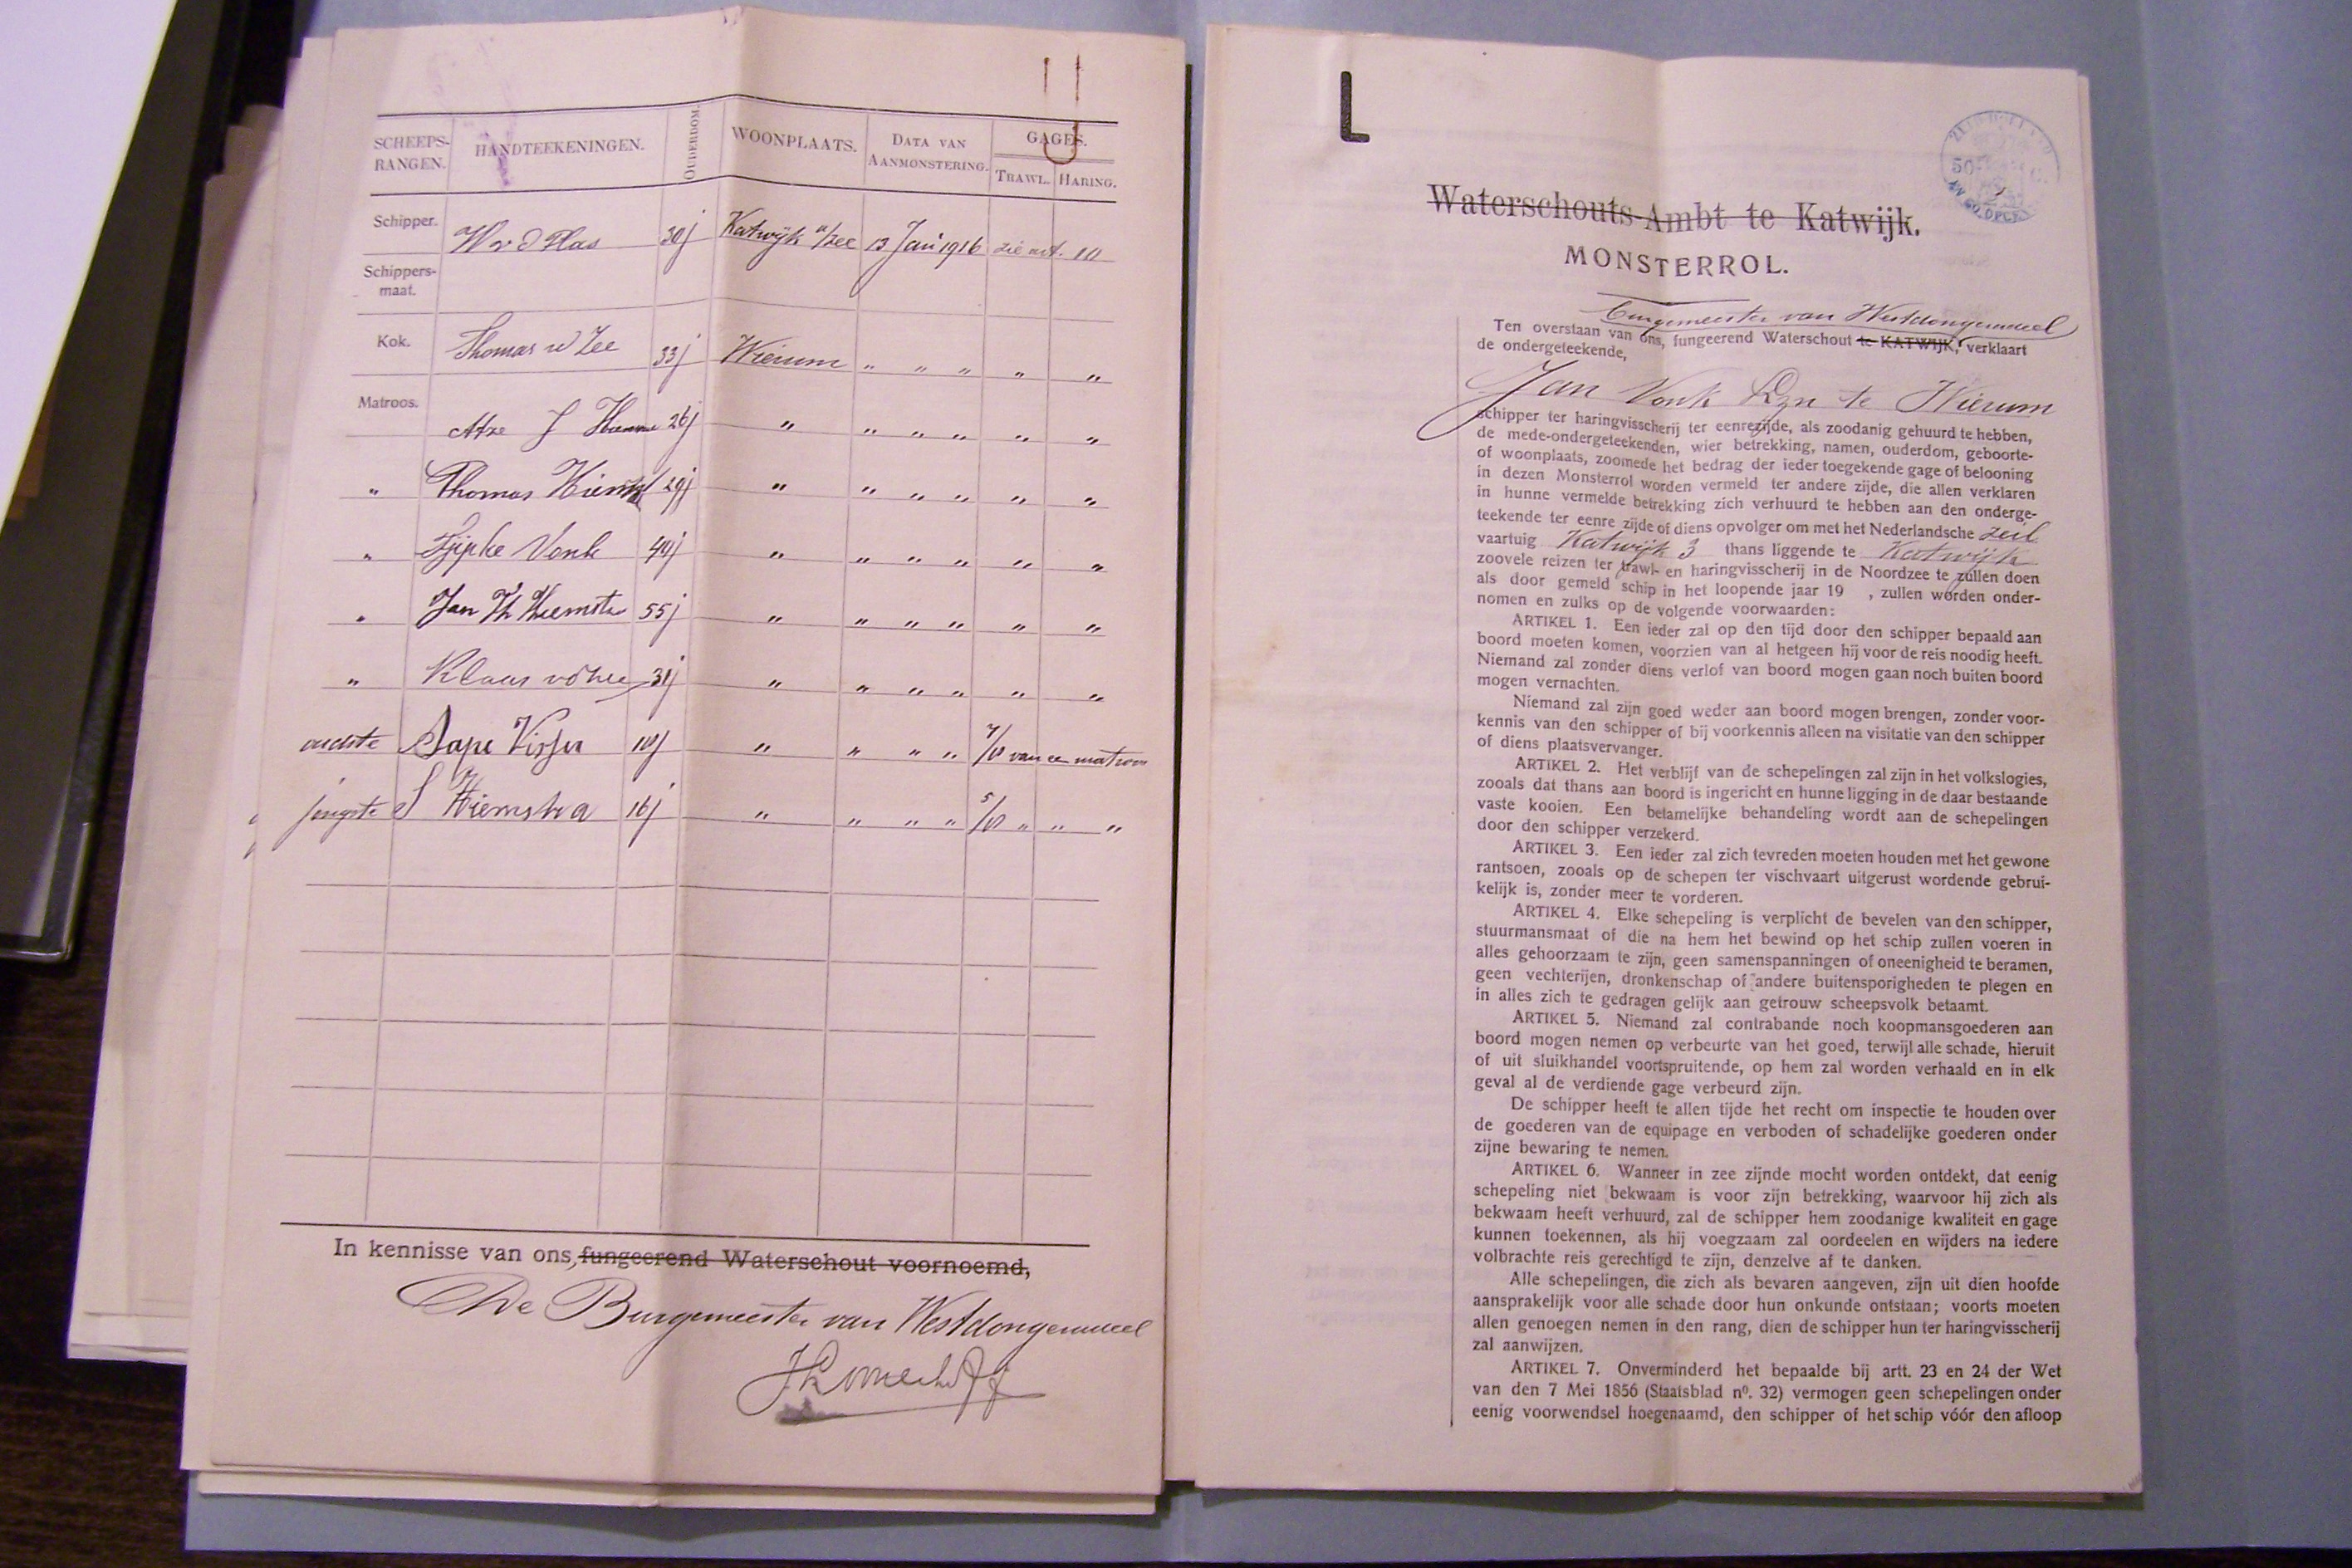 SCHEEPS-RANGEN. HANDTEEKENINGEN. OUDERDOM. WOONPLAATS. DATA VAN AANMONSTERING. GAGES. TRAWL. HARING.
Schipper. W v d Plas 30j Katwijk a/zee 13 Jan 1916 zie art. 10
Schippers-maat.
Kok. Thomas vd Zee 33j Wierum " " " " "
Matroos. J 26j " " " " " "
" Thomas 29j " " " " " "
" Vonk 49j " " " " " "
" Jan Th Hiemstra 55j " " " " " "
" Klaas vd Zee 31j " " " " " "
oudste Sape Visser " " " " 7/10 van een matroos
jongste S Hiemstra 16j " " " " 5/10 " " "
In kennisse van ons, fungeerend Waterschout voornoemd,
De Burgemeester van Westdongeradeel
L
Waterschouts-Ambt te Katwijk.
MONSTERROL.
Burgemeester van Westdongeradeel
Ten overstaan van ons, fungeerend Waterschout te KATWIJK, verklaart
de ondergeteekende,
Jan Vonk Rzn te Wierum
schipper ter haringvisscherij ter eenrezijde, als zoodanig gehuurd te hebben,
de mede-ondergeteekenden, wier betrekking, namen, ouderdom, geboorte-
of woonplaats, zoomede het bedrag der ieder toegekende gage of belooning
in dezen Monsterrol worden vermeld ter andere zijde, die allen verklaren
in hunne vermelde betrekking zich verhuurd te hebben aan den onderge-
teekende ter eenre zijde of diens opvolger om met het Nederlandsche zeil
vaartuig Katwijk 3 thans liggende te Katwijk
zoovele reizen ter trawl- en haringvisscherij in de Noordzee te zullen doen
als door gemeld schip in het loopende jaar 19 , zullen worden onder-
nomen en zulks op de volgende voorwaarden:
ARTIKEL 1. Een ieder zal op den tijd door den schipper bepaald aan
boord moeten komen, voorzien van al hetgeen hij voor de reis noodig heeft.
Niemand zal zonder diens verlof van boord mogen gaan noch buiten boord
mogen vernachten.
Niemand zal zijn goed weder aan boord mogen brengen, zonder voor-
kennis van den schipper of bij voorkennis alleen na visitatie van den schipper
of diens plaatsvervanger.
ARTIKEL 2. Het verblijf van de schepelingen zal zijn in het volkslogies,
zooals dat thans aan boord is ingericht en hunne ligging in de daar bestaande
vaste kooien. Een betamelijke behandeling wordt aan de schepelingen
door den schipper verzekerd.
ARTIKEL 3. Een ieder zal zich tevreden moeten houden met het gewone
rantsoen, zooals op de schepen ter vischvaart uitgerust wordende gebrui-
kelijk is, zonder meer te vorderen.
ARTIKEL 4. Elke schepeling is verplicht de bevelen van den schipper,
stuurmansmaat of die na hem het bewind op het schip zullen voeren in
alles gehoorzaam te zijn, geen samenspanningen of oneenigheid te beramen,
geen vechterijen, dronkenschap of andere buitensporigheden te plegen en
in alles zich te gedragen gelijk aan getrouw scheepsvolk betaamt.
ARTIKEL 5. Niemand zal contrabande noch koopmansgoederen aan
boord mogen nemen op verbeurte van het goed, terwijl alle schade, hieruit
of uit sluikhandel voortspruitende, op hem zal worden verhaald en in elk
geval al de verdiende gage verbeurd zijn.
De schipper heeft te allen tijde het recht om inspectie te houden over
de goederen van de equipage en verboden of schadelijke goederen onder
zijne bewaring te nemen.
ARTIKEL 6. Wanneer in zee zijnde mocht worden ontdekt, dat eenig
schepeling niet bekwaam is voor zijn betrekking, waarvoor hij zich als
bekwaam heeft verhuurd, zal de schipper hem zoodanige kwaliteit en gage
kunnen toekennen, als hij voegzaam zal oordeelen en wijders na iedere
volbrachte reis gerechtigd te zijn, denzelve af te danken.
Alle schepelingen, die zich als bevaren aangeven, zijn uit dien hoofde
aansprakelijk voor alle schade door hun onkunde ontstaan; voorts moeten
allen genoegen nemen in den rang, dien de schipper hun ter haringvisscherij
zal aanwijzen.
ARTIKEL 7. Onverminderd het bepaalde bij artt. 23 en 24 der Wet
van den 7 Mei 1856 (Staatsblad nº. 32) vermogen geen schepelingen onder
eenig voorwendsel hoegenaamd, den schipper of het schip vóór den afloop